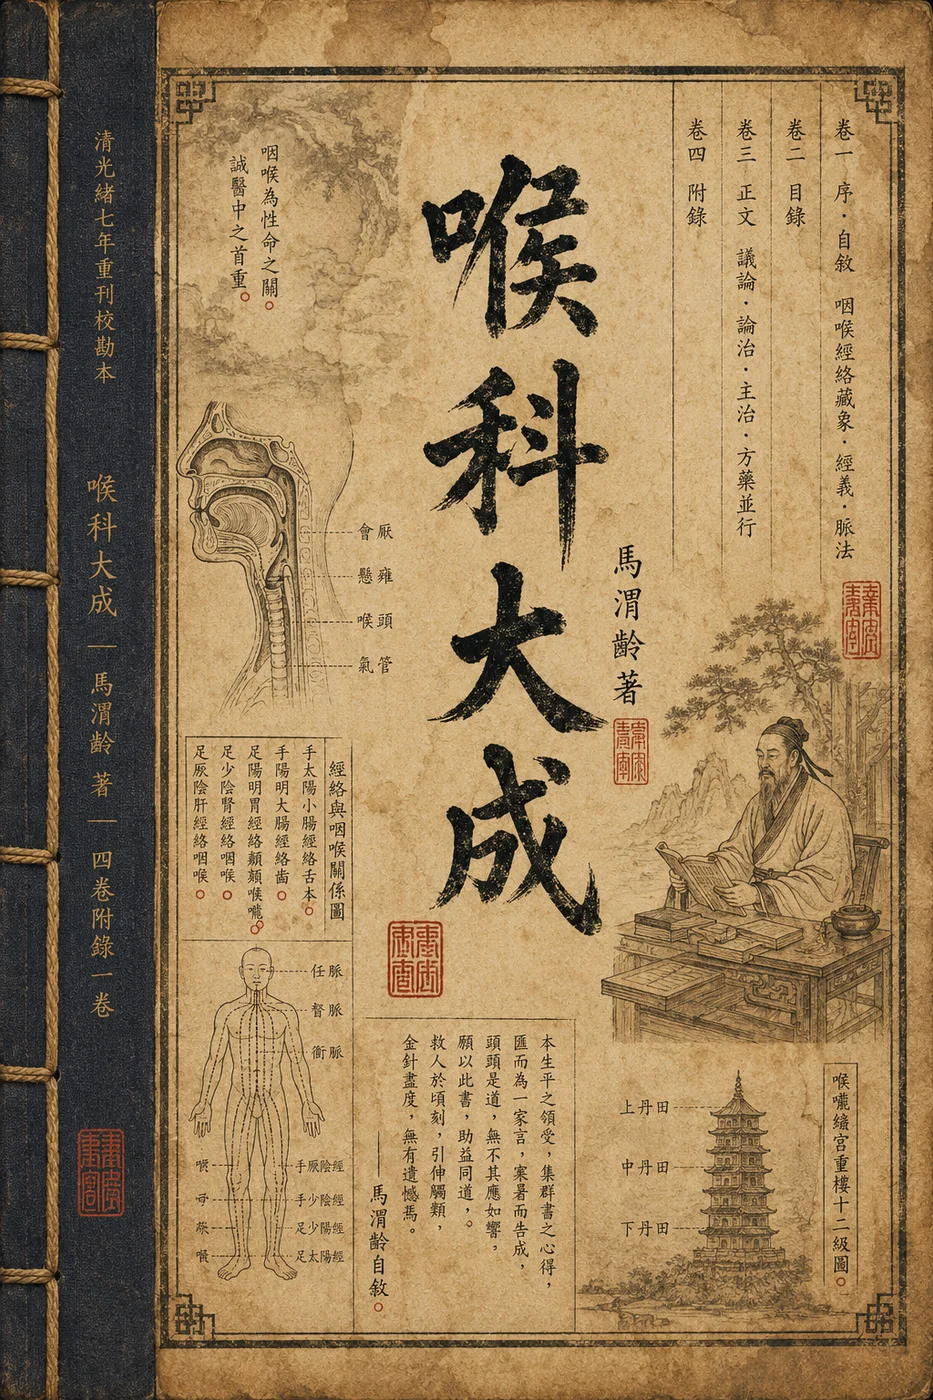 卷一　序・自敘　咽喉經絡藏象・經義・脈法
卷二　目錄
卷三　正文　議論・論治・主治・方藥並行
卷四　附錄
喉科大成
馬渭齡著
咽喉為性命之關。
誠醫中之首重。
會厭
懸雍
喉頭
氣管
經絡與咽喉關係圖
手太陽小腸經絡舌本。
手陽明大腸經絡齒。
足陽明胃經絡顙顙喉嚨。
足少陰腎經絡咽喉。
足厥陰肝經絡咽喉。
任脈
督脈
衝脈
手厥陰經
手少陰經
足少陽經
足太陽經
本生平之領受，集群書之心得，
匯而為一家言，寒暑而告成，
頭頭是道，無不其應如響，
願以此書，助益同道，。
救人於頃刻，引伸觸類，
金針盡度，無有遺憾焉。
——馬渭齡自敘。
喉嚨絳宮重樓十二級圖。
上丹田
中丹田
下丹田
清光緒七年重刊校勘本
喉科大成—馬渭齡 著—四卷附錄一卷